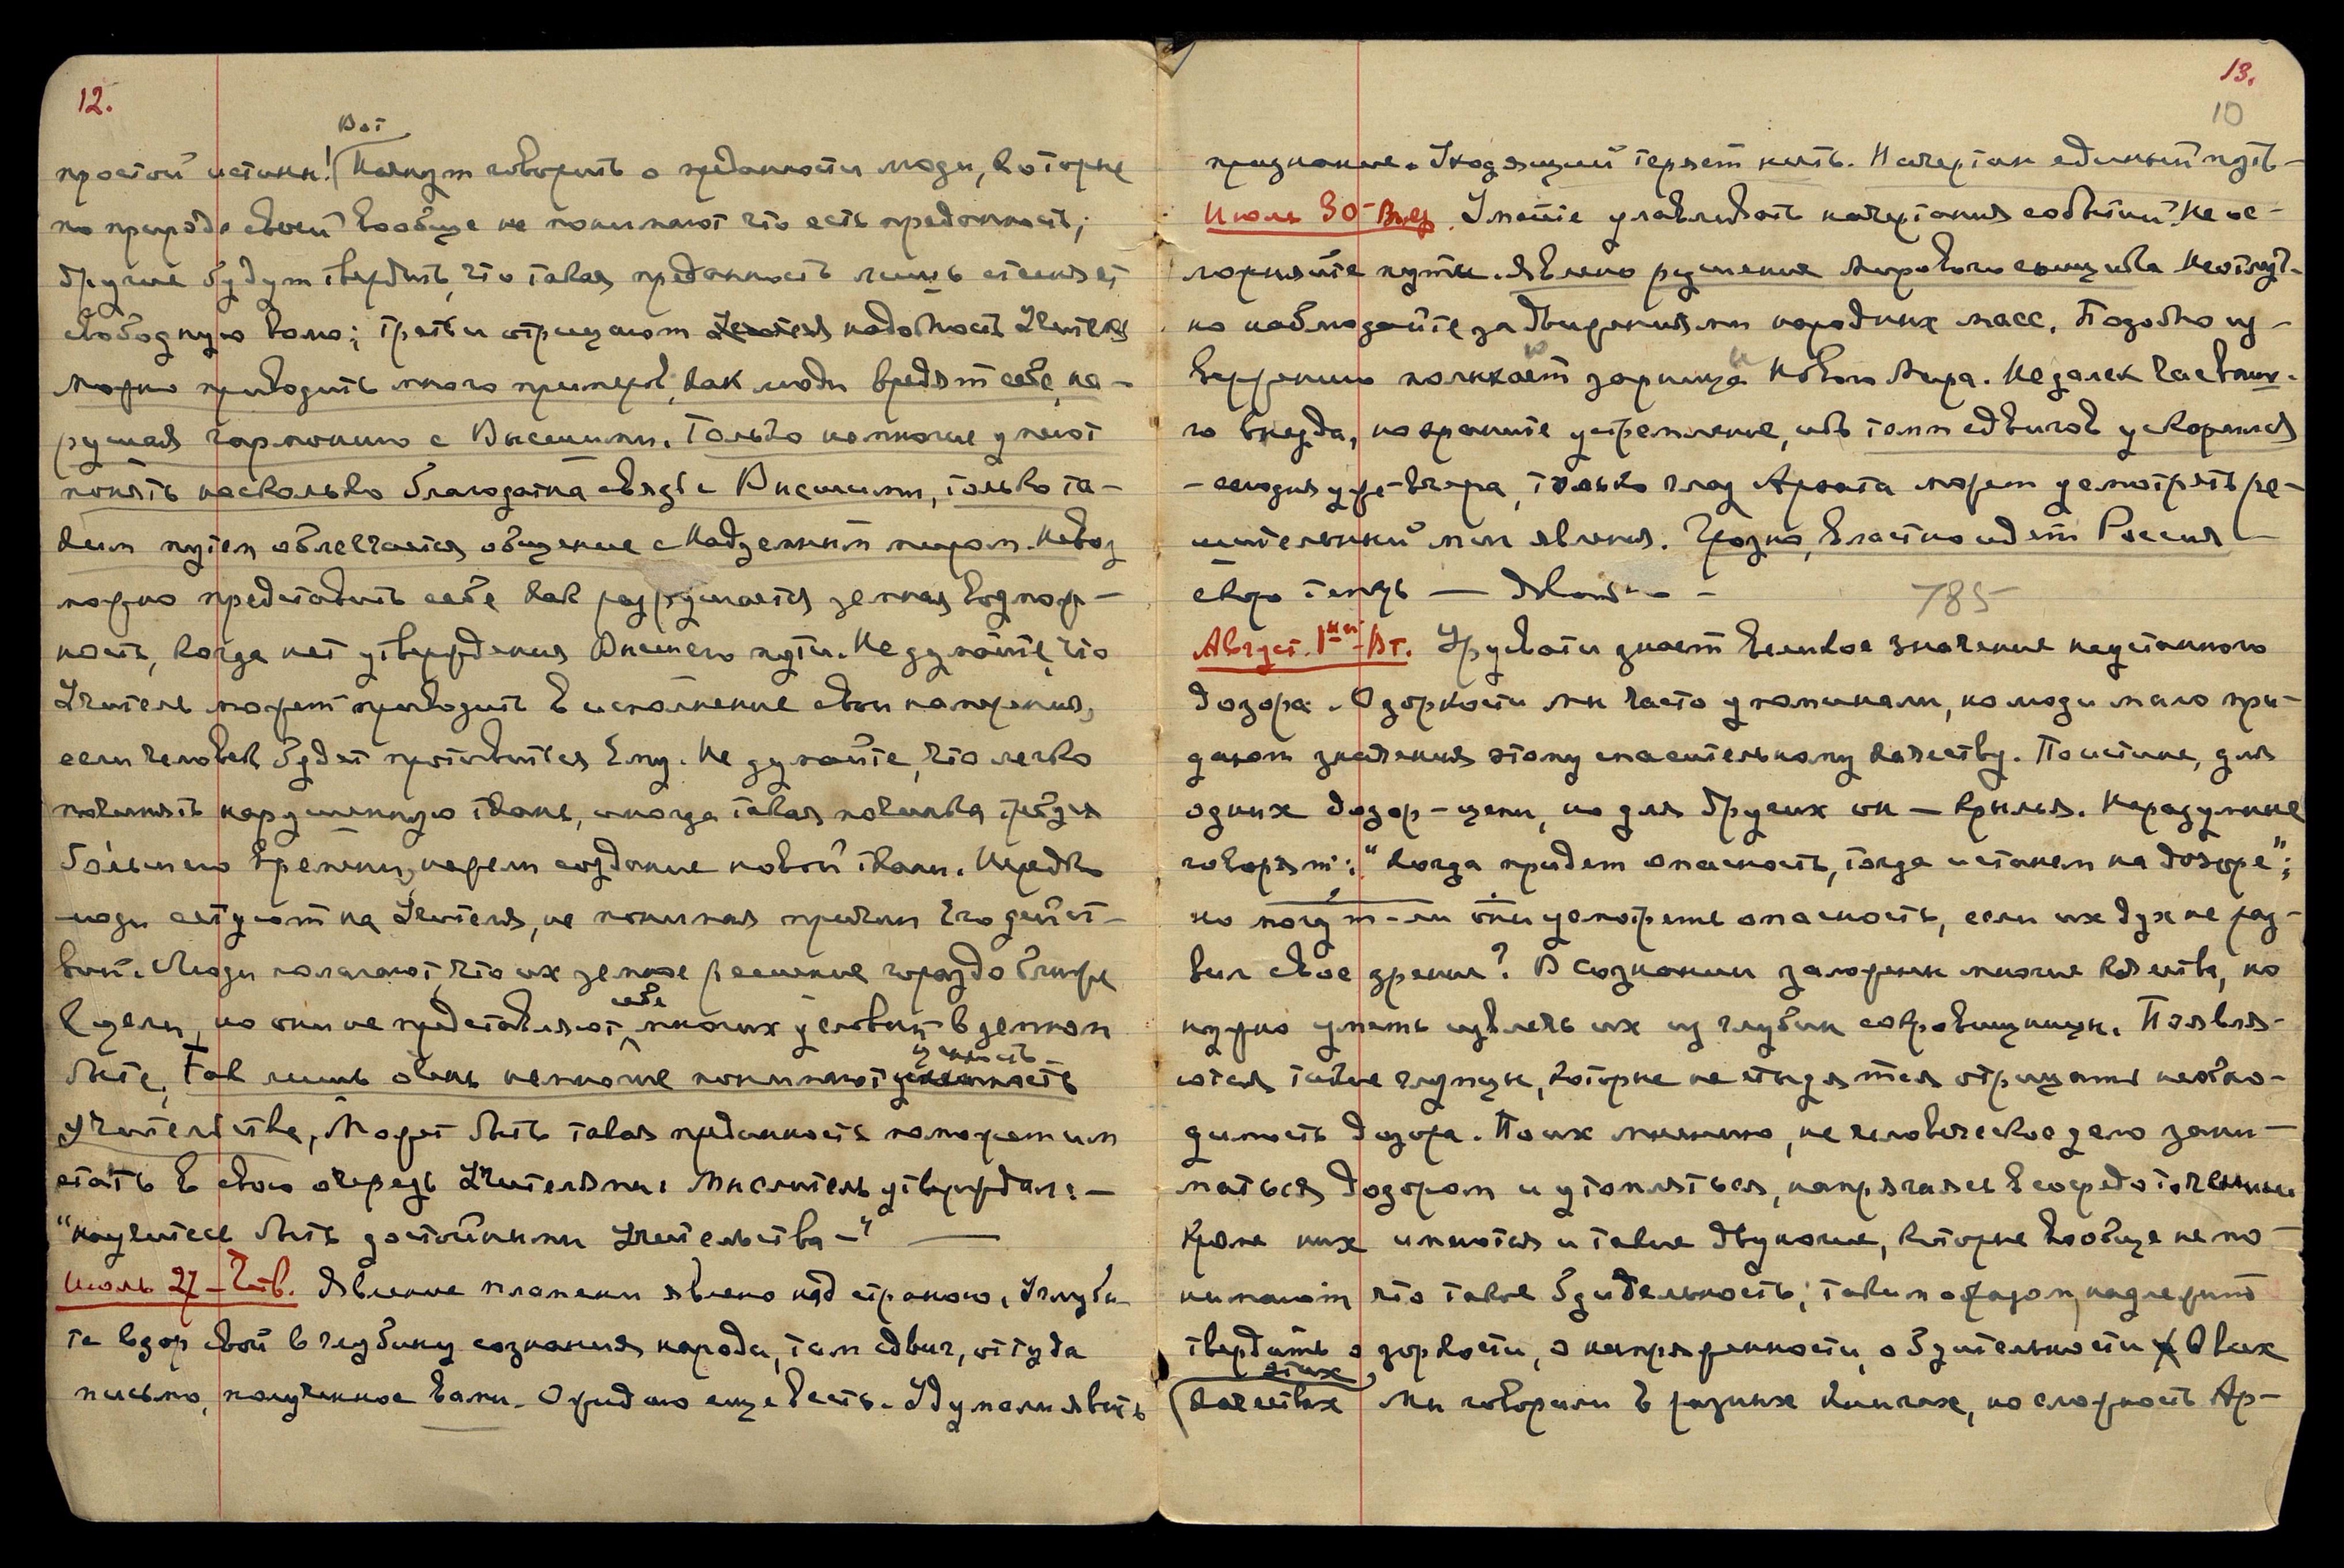 12.
Вот
простой истины! Начнут говорить о преданности люди, которые
по природе своей вообще не понимают что есть преданность;
другие будут твердить, что такая преданность лишь стесняет
свободную волю; третьи отрицают надобность Учителя
Можно приводить много примеров, как люди вредят себе, на-
рушая гармонию с Высшими. Только немногие умеют
понять насколько благодатна связь с Высшими, только та-
ким путем облегчается общение с Надземным миром. Невоз
можно представить себе как разрушается земная возмож-
ность, когда нет утверждения Высшего пути. Не думайте, что
Учитель может приводить в исполнение свои намерения,
если человек будет противиться Ему. Не думайте, что легко
починять нарушенную ткань, иногда такая починка требует
большего времени, нежели создание новой ткани. Нередко
люди сетуют на Учителя, не понимая причин Его дейст-
вий. Люди полагают, что их земное решение гораздо ближе
к цели, но они не представляют себе многих условий в земном
быте, так лишь очень немногие понимают ценность
Учительства, Может быть такая преданность поможет им
стать в свою очередь Учителями. Мыслитель утверждал: —
"научитесь быть достойными Учительства —" —
Июль 27 — Четв. Явление пламени явлено над страною. Углуби
те взор свой в глубину сознания народа, там сдвиг, оттуда
письмо, полученное вами. Ожидаю еще весть. Удумали явить
13.
10
признание. Уходящий теряет нить. Начертан единый путь —
Июль 30 — Вскр. Умейте улавливать начертания событий. Не ос-
ложняйте пути. Явлено решение Мирового сонмища неотлуч-
но наблюдайте за движениями народных масс. Подобно из-
вержению полыхают зарницы Нового Мира. Недалек час ваше-
го въезда, но храните устремление, ибо темп сдвигов ускорился
— сегодня уже вчера, только глаз Архата может усмотреть ре-
шительный миг явления. Грозно, властно идет Россия —
скоро теперь — —
785
Август. 1ый — Вт. Урусвати знает великое значение неустанного
дозора. О зоркости мы часто упоминали, но люди мало при-
дают значения этому спасительному качеству. Поистине, для
одних дозор — цепи, но для других он — крылья. Неразумные
говорят: "когда придет опасность, тогда и станем на дозоре";
но могут-ли они усмотреть опасность, если их дух не раз-
вил свое зрение? В сознании заложены многие качества, но
нужно уметь извлечь их из глубин сокровищницы. Появля-
ются такие глупцы, которые не стыдятся отрицать необхо-
димость дозора. По их мнению, не человеческое дело зани-
маться дозором и утомляться, напрягаясь в сосредоточении
Кроме них имеются и такие двуногие, которые вообще не по-
нимают что такое бдительность; таким образом, надлежит
твердить о зоркости, о напряженности, о бдительности Об этих
качествах Мы говорили в разных книгах, но сложность Ар-